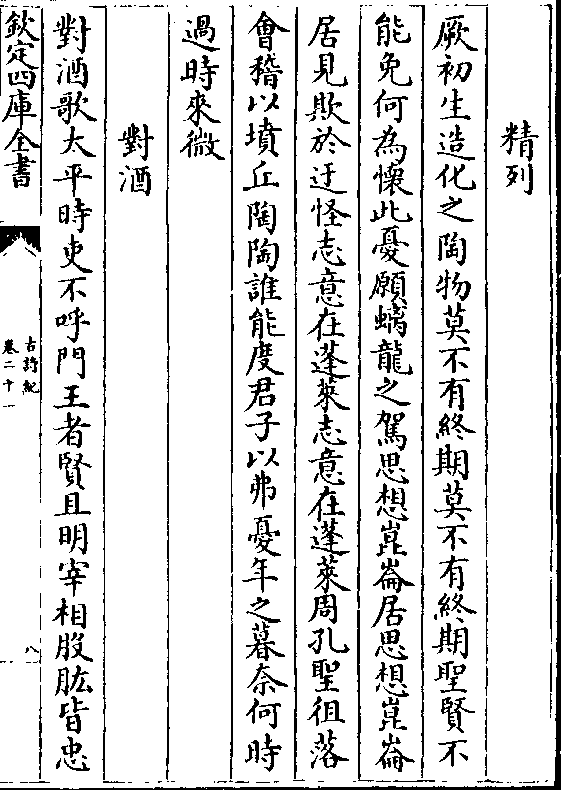 精列
厥初生造化之陶物莫不有終期莫不有終期聖賢不
能免何為懷此憂願螭龍之駕思想崑崙居思想崑崙
居見欺於迂怪志意在蓬萊志意在蓬萊周孔聖徂落
會稽以墳丘陶陶誰能度君子以弗憂年之暮奈何時
過時來微
對酒
對酒歌太平時吏不呼門王者賢且明宰相股肱皆忠
欽定四庫全書
古詩紀
卷二十一
八